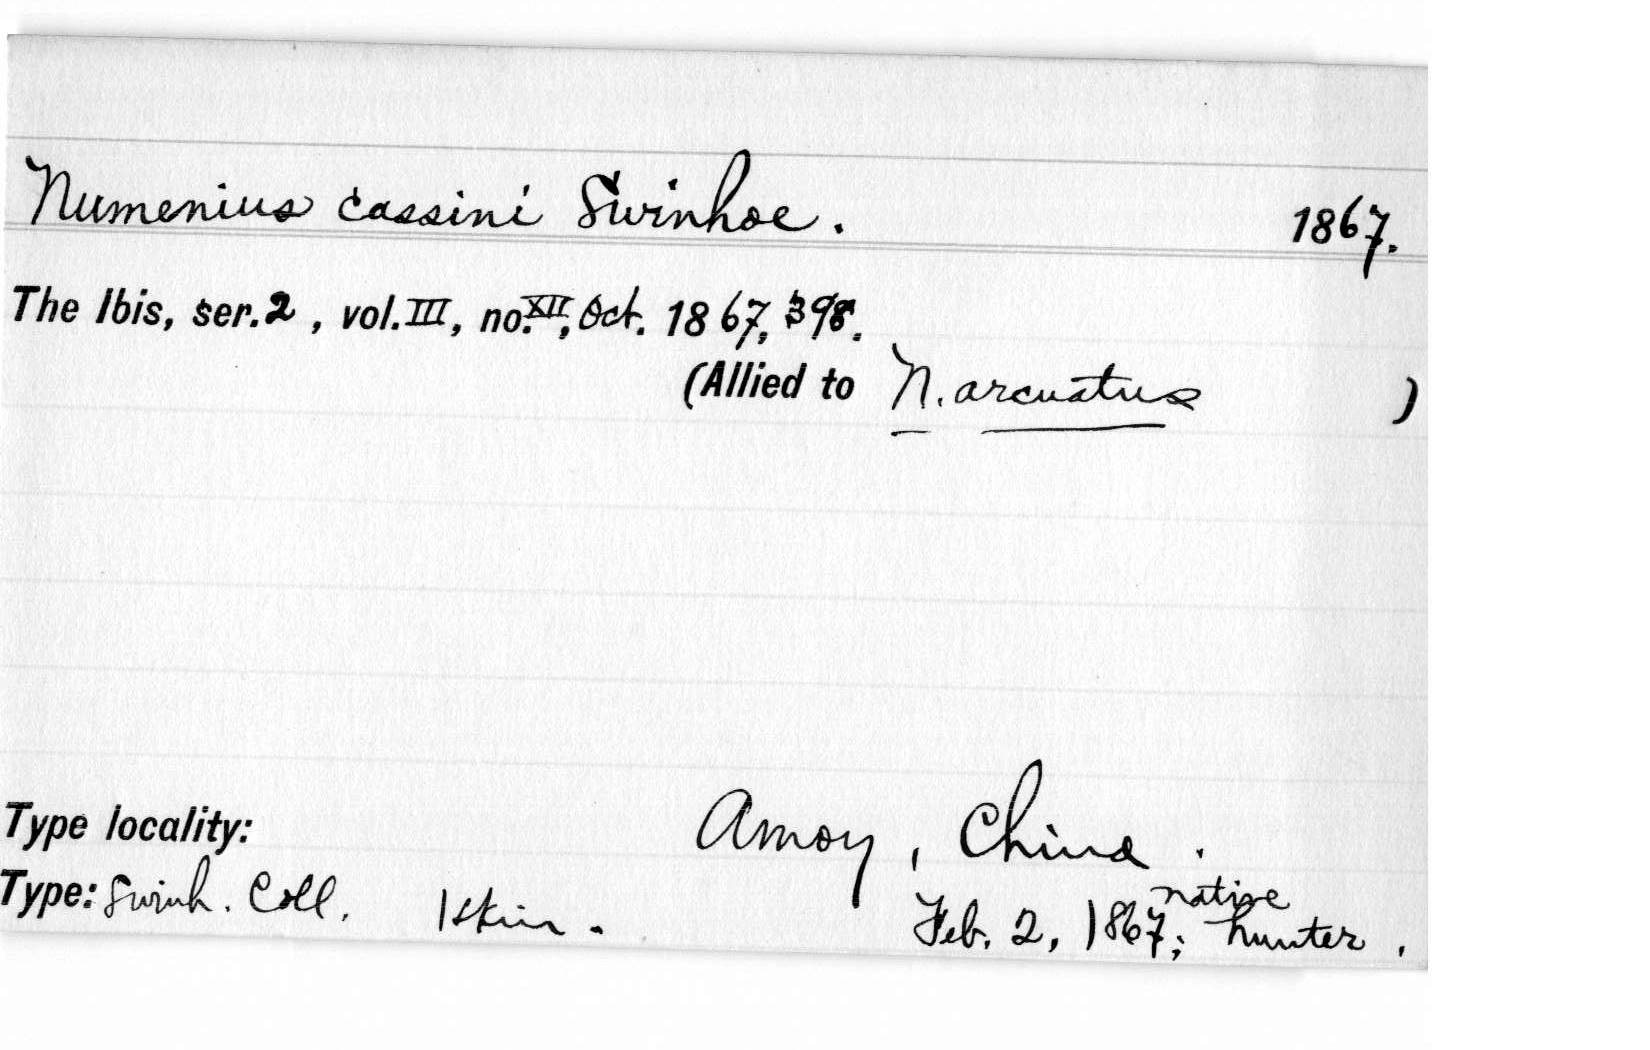 Numenius cassini Swinhoe. 1867.
The Ibis, ser. 2, vol. III, no. XII, Oct. 1867, 398.
(Allied to N. arcuatus )
Type locality: Amoy, China.
Type: Swinh. Coll. 1 skin. Feb. 2, 1867; native hunter.